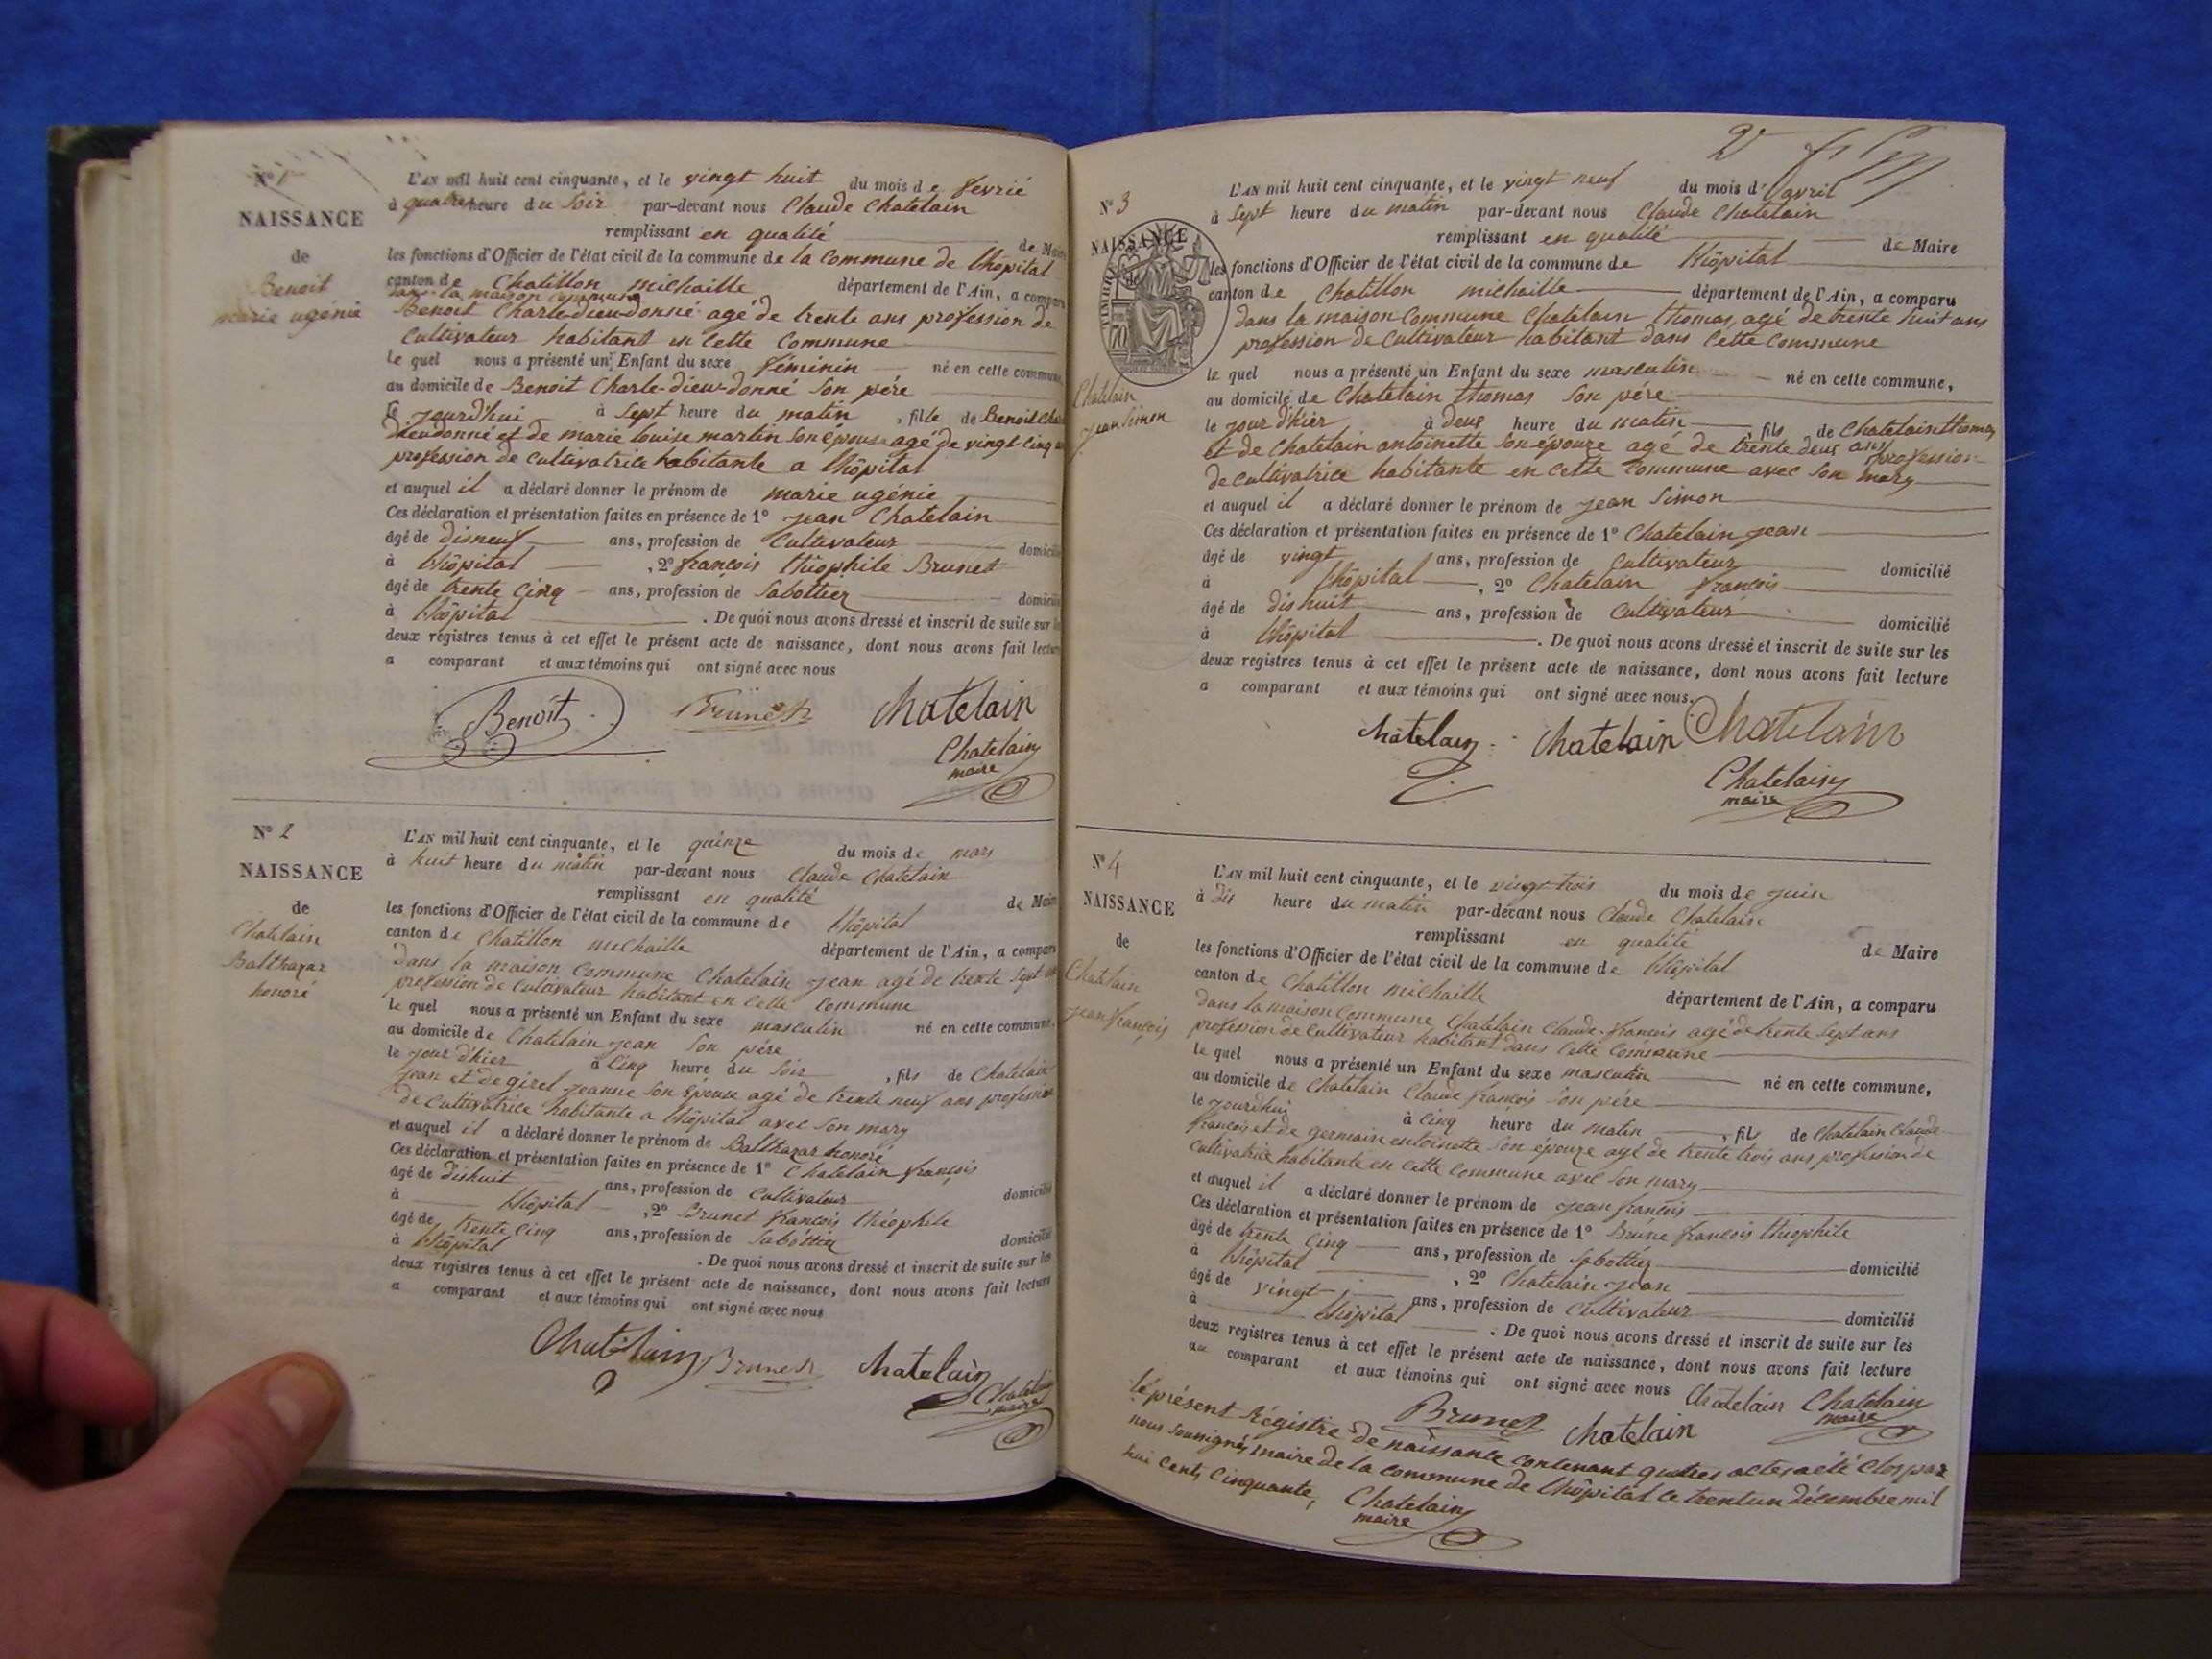 N° 1
NAISSANCE
de
Benoit
marie ugénie
L'AN mil huit cent cinquante, et le vingt huit du mois de fevrié
à quatre heure du soir par-devant nous Claude Chatelain
remplissant en qualité de Maire
les fonctions d'Officier de l'état civil de la commune de la commune de lhôpital
canton de Chatillon michaille département de l'Ain, a comparu
dans la maison commune
Benoit Charle-dieu-donné agé de trente ans profession de
Cultivateur habitant en cette commune
le quel nous a présenté un Enfant du sexe féminin né en cette commune,
au domicile de Benoit Charle-dieu-donné son pére
le jourd'hui à sept heure du matin, fille de Benoit Charle
dieudonné et de marie louise martin son épouse agé de vingt cinq ans
profession de cultivatrice habitante a lhôpital
et auquel il a déclaré donner le prénom de marie ugénie
Ces déclaration et présentation faites en présence de 1° jean Chatelain
âgé de disneuf ans, profession de Cultivateur domicilié
à lhôpital, 2° françois théophile Brunet
âgé de trente cinq ans, profession de Sabottier domicilié
à lhôpital. De quoi nous avons dressé et inscrit de suite sur les
deux registres tenus à cet effet le présent acte de naissance, dont nous avons fait lecture
a comparant et aux témoins qui ont signé avec nous
Benoit Brunet Chatelain
Chatelain
maire
N° 2
NAISSANCE
de
Chatelain
Balthazar
honoré
L'AN mil huit cent cinquante, et le quinze du mois de mars
à huit heure du matin par-devant nous Claude Chatelain
remplissant en qualité de Maire
les fonctions d'Officier de l'état civil de la commune de lhôpital
canton de Chatillon michaille département de l'Ain, a comparu
dans la maison Commune Chatelain jean agé de trente sept ans
profession de Cultivateur habitant en cette commune
le quel nous a présenté un Enfant du sexe masculin né en cette commune,
au domicile de Chatelain jean son pére
le jour d'hier à cinq heure du soir, fils de Chatelain
jean et de girel jeanne son épouse agé de trente neuf ans profession
de cultivatrice habitante a lhôpital avec son mary
et auquel il a déclaré donner le prénom de Balthazar honoré
Ces déclaration et présentation faites en présence de 1° Chatelain françois
âgé de dishuit ans, profession de Cultivateur domicilié
à lhôpital, 2° Brunet françois théophile
âgé de trente cinq ans, profession de Sabottier domicilié
à lhôpital. De quoi nous avons dressé et inscrit de suite sur les
deux registres tenus à cet effet le présent acte de naissance, dont nous avons fait lecture
a comparant et aux témoins qui ont signé avec nous
Chatelain Brunet Chatelain
Chatelain
maire
2
N° 3
NAISSANCE
TIMBRE
Chatelain
jean Simon
L'AN mil huit cent cinquante, et le vingt neuf du mois d'avril
à sept heure du matin par-devant nous Claude Chatelain
remplissant en qualité de Maire
les fonctions d'Officier de l'état civil de la commune de lhôpital
canton de Chatillon michaille département de l'Ain, a comparu
dans la maison commune Chatelain thomas, agé de trente huit ans
profession de Cultivateur habitant dans cette commune
le quel nous a présenté un Enfant du sexe masculin né en cette commune,
au domicile de Chatelain thomas son pére
le jour d'hier à deus heure du matin, fils de Chatelain thomas
et de Chatelain antoinette son épouze agé de trente deus ans profession
de cultivatrice habitante en cette commune avec son mary
et auquel il a déclaré donner le prénom de jean Simon
Ces déclaration et présentation faites en présence de 1° Chatelain jean
âgé de vingt ans, profession de Cultivateur domicilié
à lhôpital, 2° Chatelain françois
âgé de dishuit ans, profession de Cultivateur domicilié
à lhôpital. De quoi nous avons dressé et inscrit de suite sur les
deux registres tenus à cet effet le présent acte de naissance, dont nous avons fait lecture
a comparant et aux témoins qui ont signé avec nous.
Chatelain Chatelain Chatelain
Chatelain
maire
N° 4
NAISSANCE
de
Chatelain
jean françois
L'AN mil huit cent cinquante, et le vingt-trois du mois de juin
à dis heure du matin par-devant nous Claude Chatelain
remplissant en qualité de Maire
les fonctions d'Officier de l'état civil de la commune de lhôpital
canton de Chatillon michaille département de l'Ain, a comparu
dans la maison commune Chatelain Claude-françois agé de trente sept ans
profession de Cultivateur habitant dans cette commune
le quel nous a présenté un Enfant du sexe masculin né en cette commune,
au domicile de Chatelain Claude françois son pére
le jourdhui à cinq heure du matin, fils de Chatelain Claude
françois et de germain entoinette son épouze agé de trente trois ans profession de
cultivatrice habitante en cette commune avec son mary
et auquel il a déclaré donner le prénom de jean françois
Ces déclaration et présentation faites en présence de 1° Brune françois théophile
âgé de trente cinq ans, profession de Sabottier domicilié
à lhôpital, 2° Chatelain jean
âgé de vingt ans, profession de Cultivateur domicilié
à lhôpital. De quoi nous avons dressé et inscrit de suite sur les
deux registres tenus à cet effet le présent acte de naissance, dont nous avons fait lecture
au comparant et aux témoins qui ont signé avec nous Chatelain Chatelain
maire
Brunet Chatelain
le présent Régistre de naissance contenant quatres actes a été clos par
nous soussignés maire de la commune de lhôpital le trentun décembre mil
hui cents cinquante, Chatelain
maire